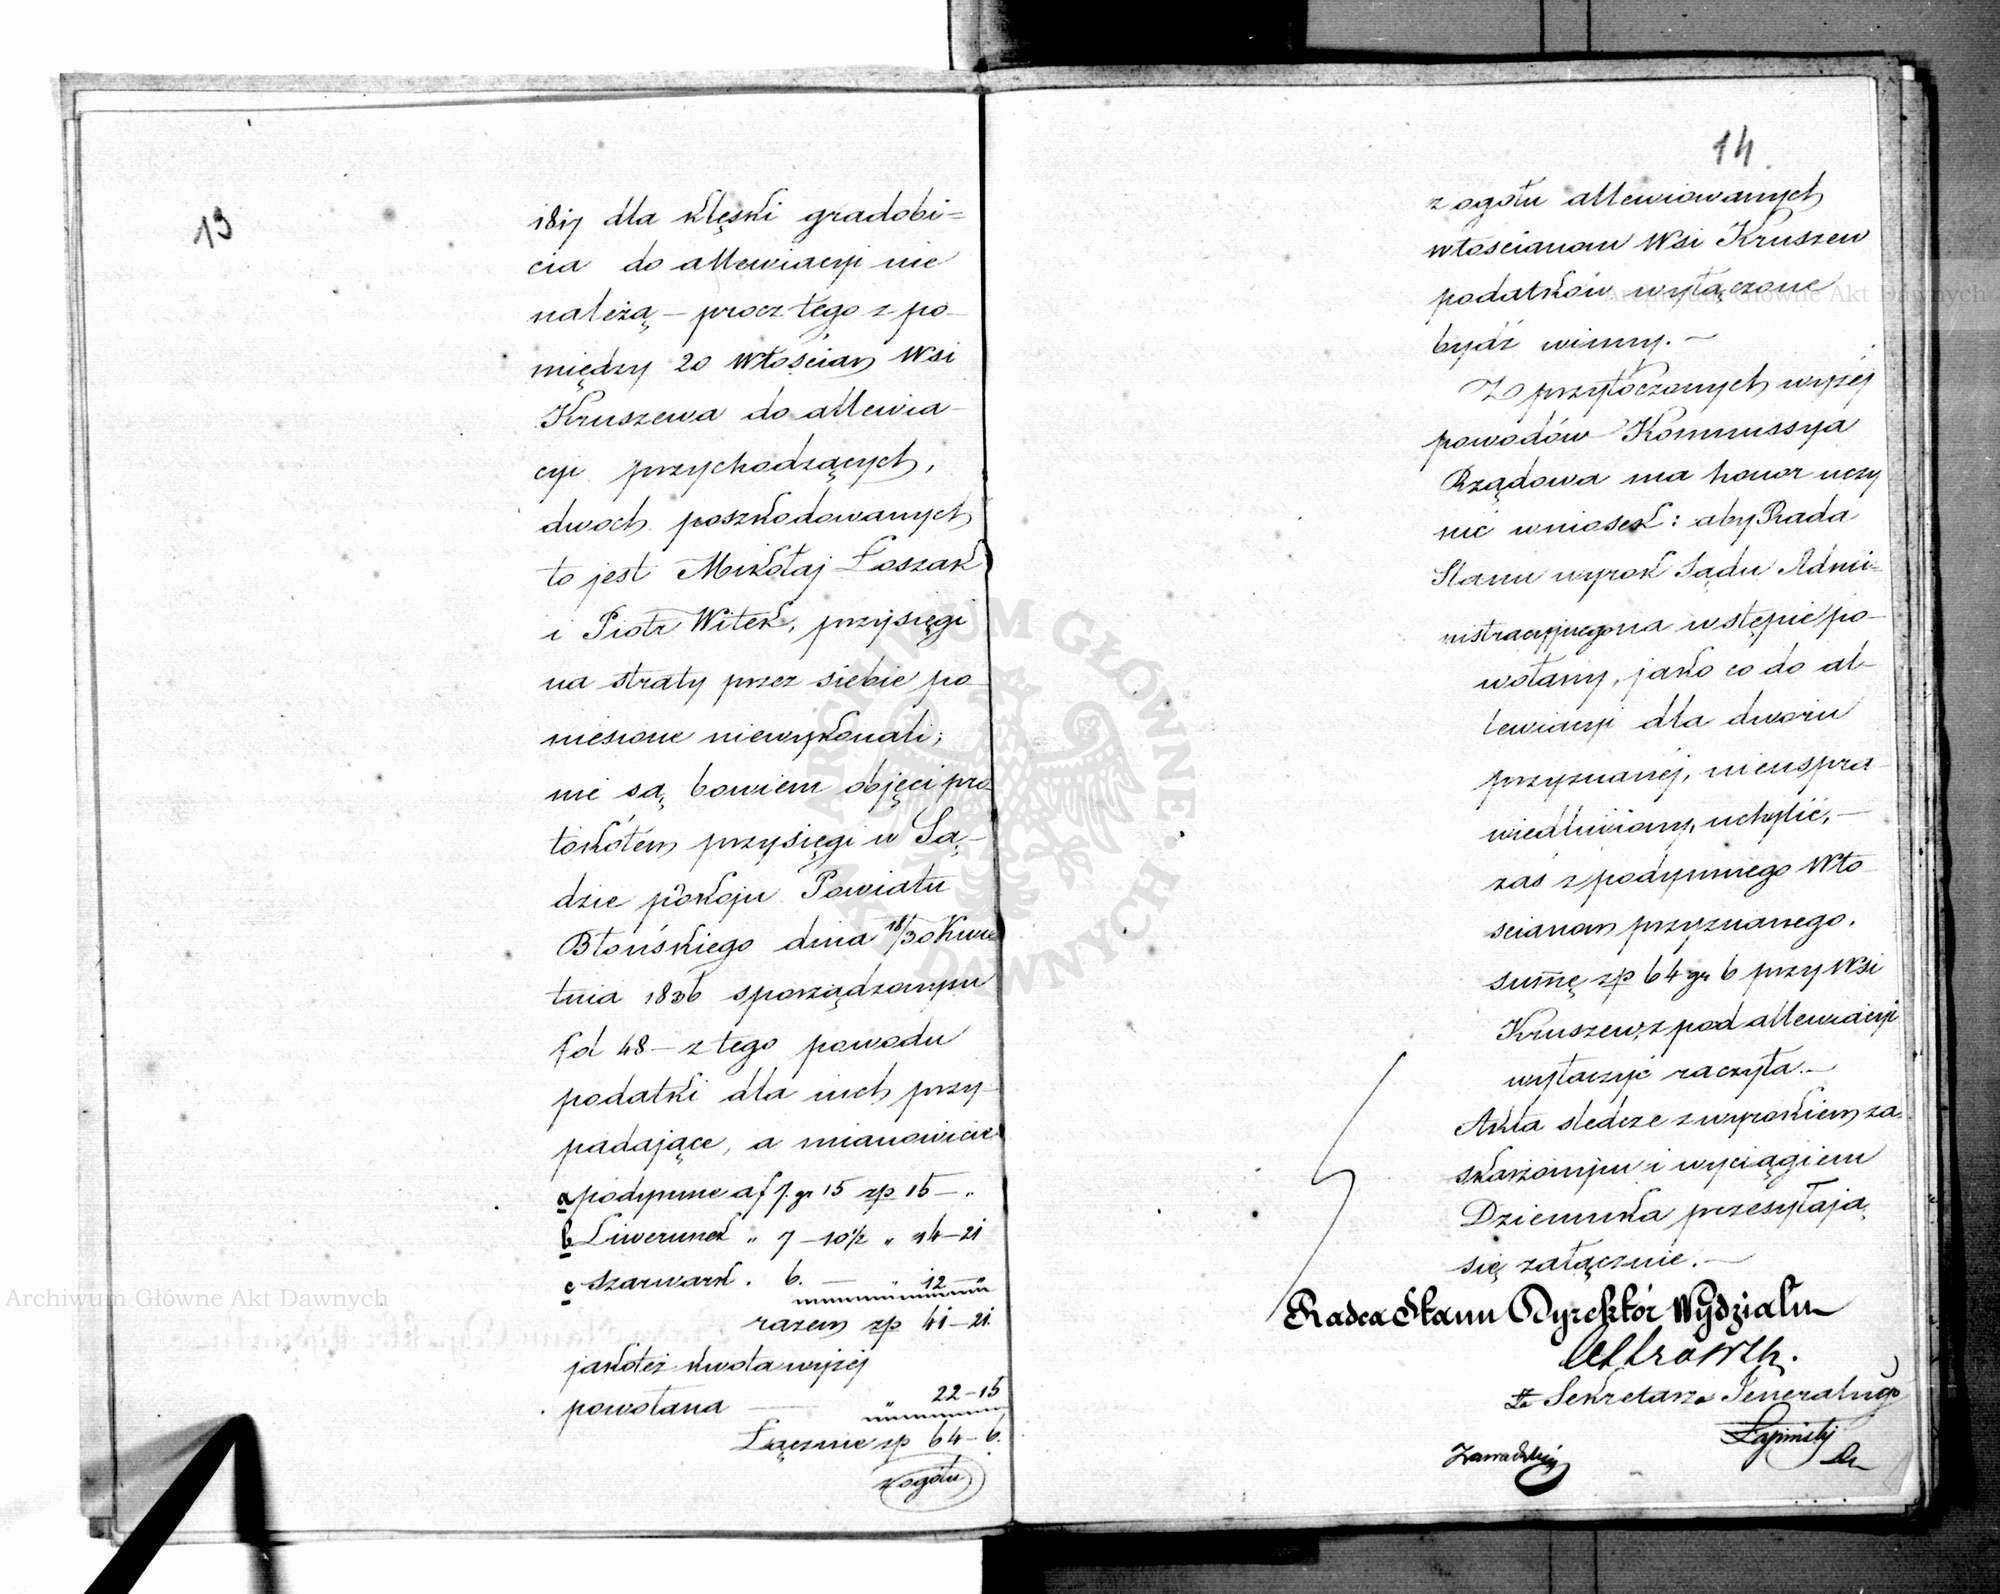 13
1817 dla klęski gradobi=
cia do allewiacyi nie
należą – procz tego z po
między 20 Włościan Wsi
Kruszewa do allewia-
cyi przychodzących,
dwoch poszkodowanych
to jest Mikołaj Łoszak
i Piotr Witek, przysięgi
na straty przez siebie po
niesione niewykonali;
nie są bowiem objęci pro
tokółem przysięgi w Są-
dzie pokoju Powiatu
Błońskiego dnia 18/30 Kwie
tnia 1836 sporządzonym
fol 48 – z tego powodu
podatki dla nich przy-
padające, a mianowicie
a podymne a f 7. gr 15 zp 15 – „
b Liwerunek „ 7 – 10½ „ 14 – 21
c Szarwark . 6. — „ 12 – „
razem zp 41 – 21.
jakoteż kwota wyżej
powołana — „ 22 – 15
Łącznie zp 64 – 6.
z ogółu
14
z ogołu allewiowanych
włościanom Wsi Kruszew
podatków wyłączone
bydź winny. –
Z przytoczonych wyżej
powodów Kommissya
Rządowa ma honor uczy
nić wniosek: aby Rada
Stanu wyrok Sądu Admi=
nistracyjnego na wstępie po-
wołany, jako co do al-
lewiacyi dla dworu
przyznanej, nieuspra-
wiedliwiony, uchylić, –
zaś z podymnego Wło
scianom przyznanego.
summę zp 64 gr 6 przy Wsi
Kruszew, z pod allewiacyi
wyłaczyć raczyła. –
Akta sledcze z wyrokiem za-
skarżonym i wyciągiem
Dziennika przesyłają
się załącznie. –
Radca Stanu Dyrektor Wydziału
za Sekretarza Jeneralnego
Łapinski
Zawadzki
Archiwum Główne Akt Dawnych
Archiwum Główne Akt Dawnych
ARCHIWUM GŁÓWNE AKT DAWNYCH